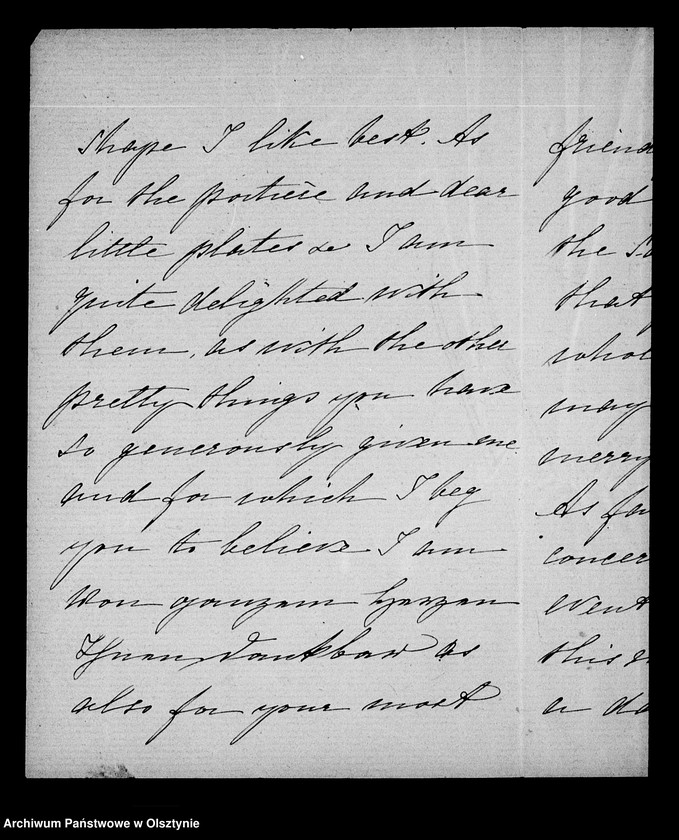 shape I like best. As
for the portière and dear
little plates &c I am
quite delighted with
them, as with the other
pretty things you have
so generously given me
and for which I beg
you to believe I am
von ganzem Herzen
Ihnen dankbar as
also for your most
friend
good
the
that
whol
may
merry
As far
concer
went
this
a da
Archiwum Państwowe w Olsztynie